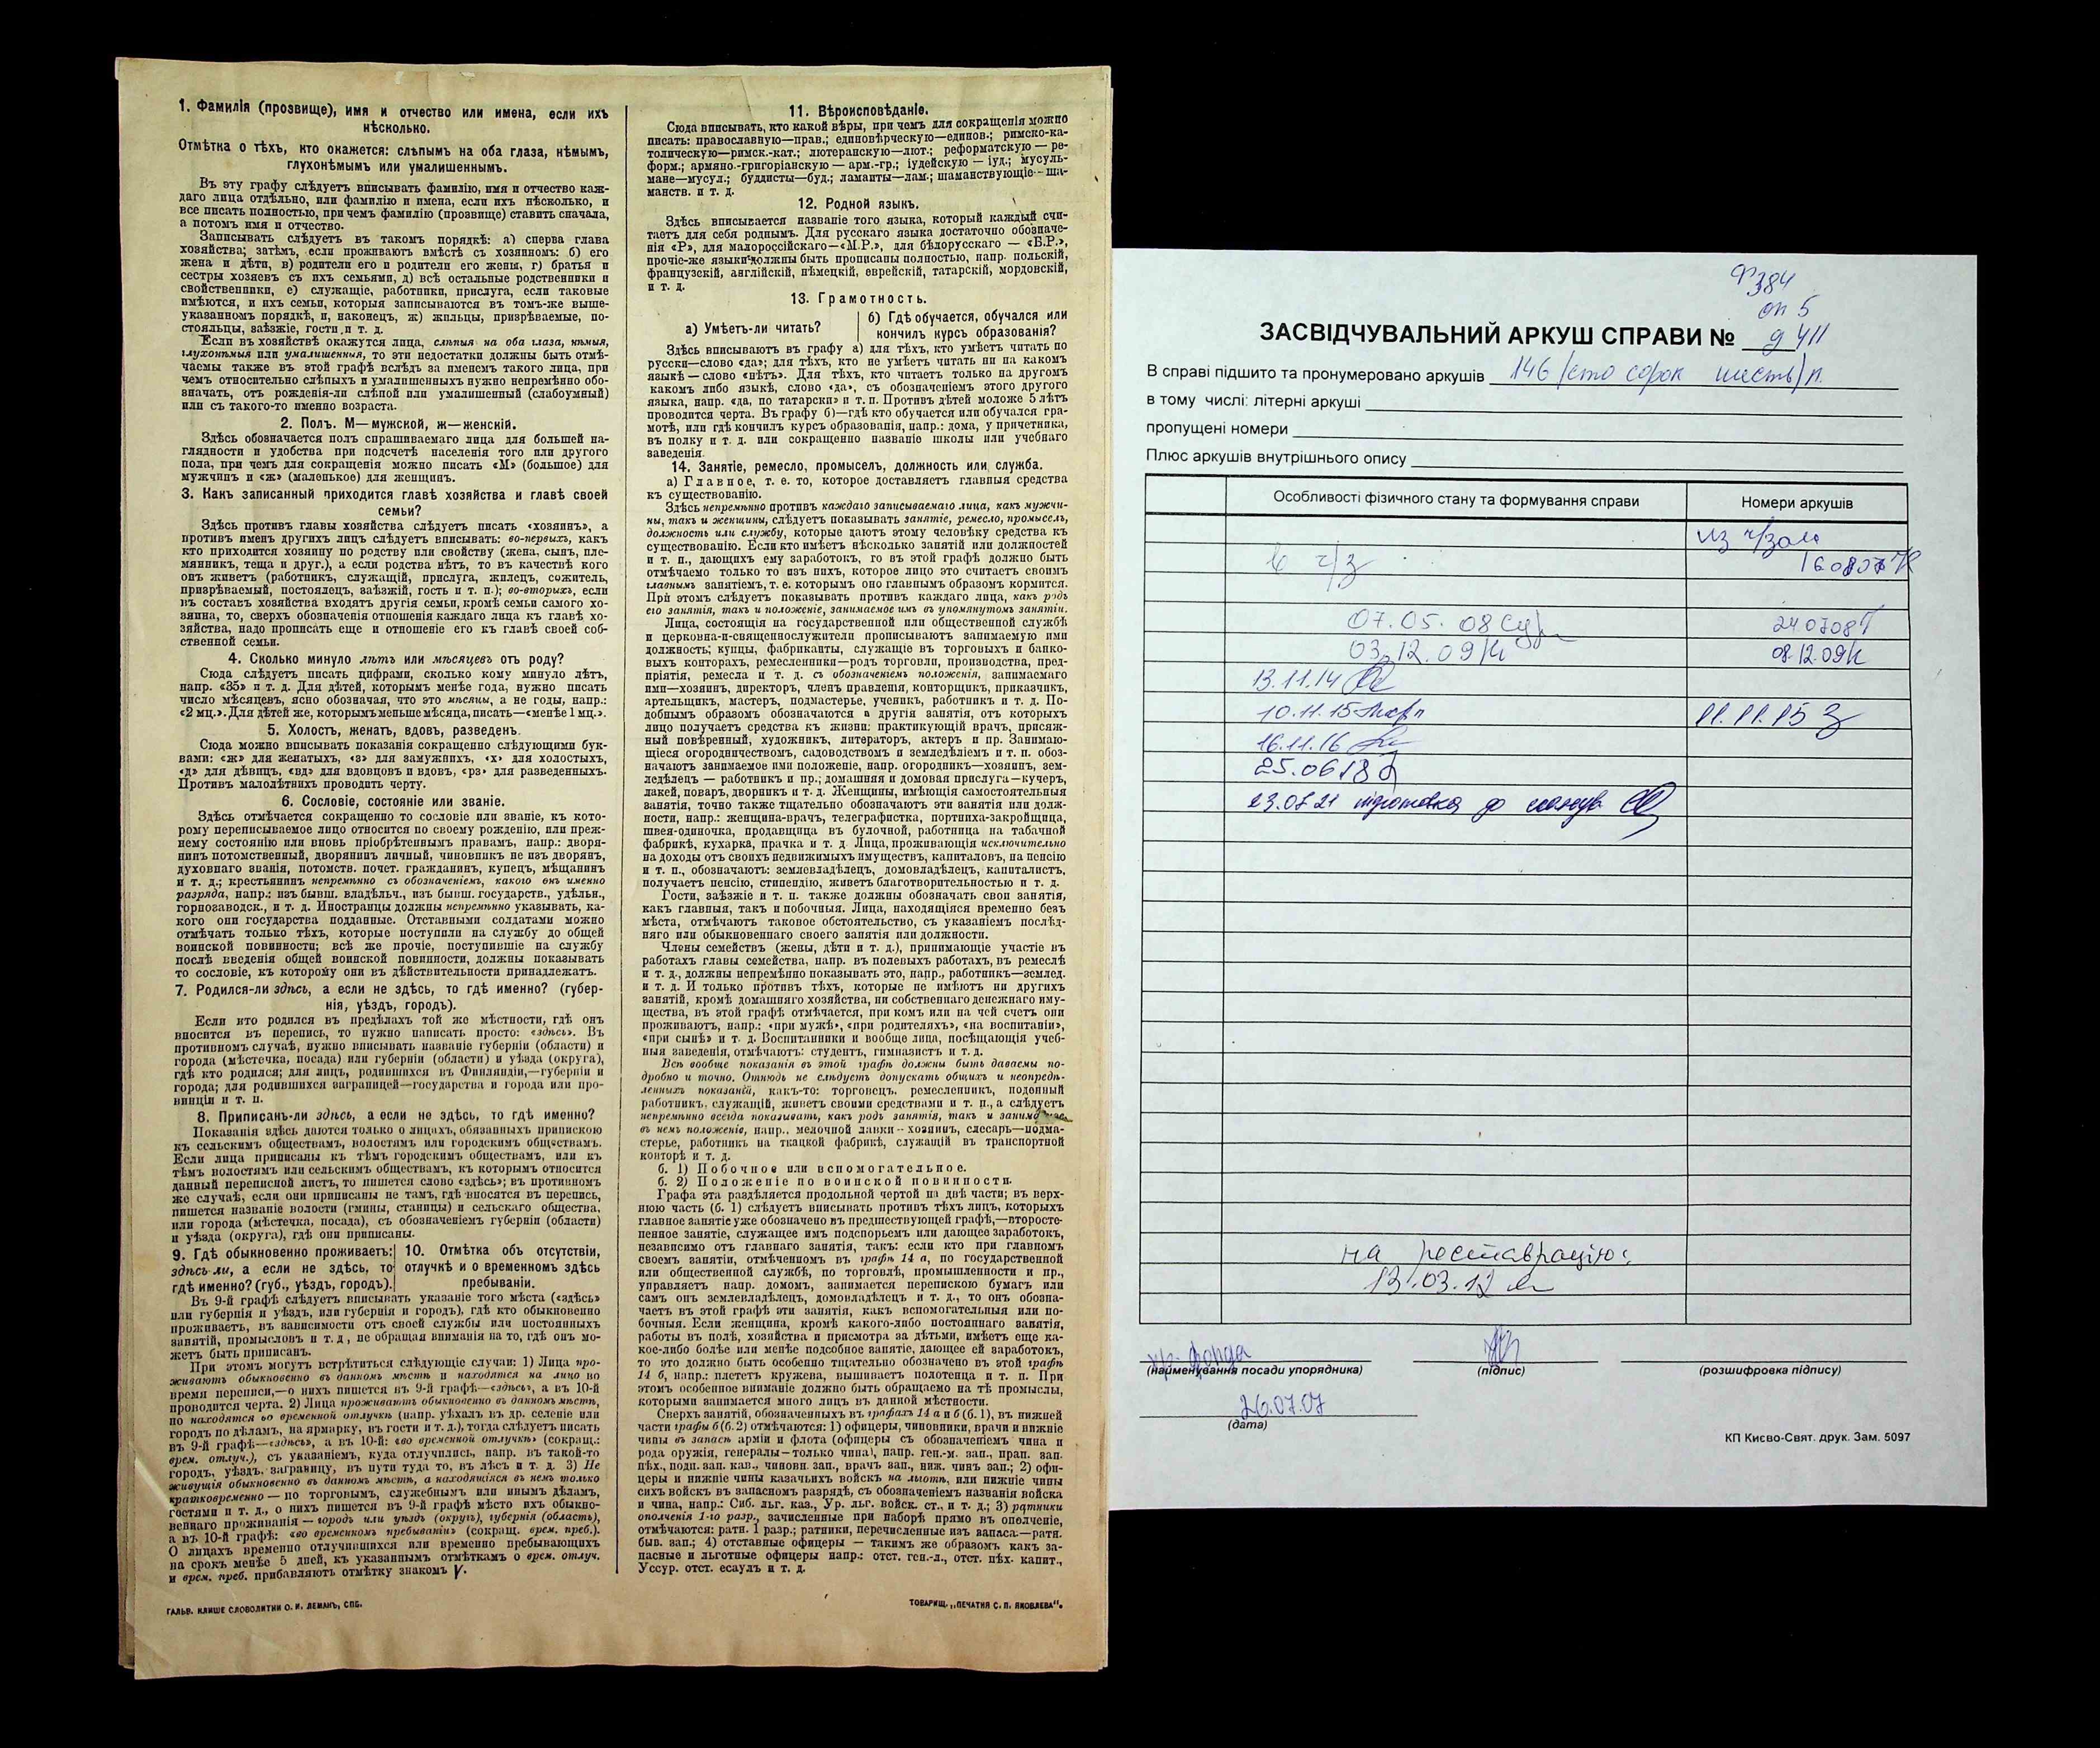 1. Фамилія (прозвище), имя и отчество или имена, если ихъ
нѣсколько.
Отмѣтка о тѣхъ, кто окажется: слѣпымъ на оба глаза, нѣмымъ,
глухонѣмымъ или умалишеннымъ.
Въ эту графу слѣдуетъ вписывать фамилію, имя и отчество каж-
даго лица отдѣльно, или фамилію и имена, если ихъ нѣсколько, и
все писать полностью, при чемъ фамилію (прозвище) ставить сначала,
а потомъ имя и отчество.
Записывать слѣдуетъ въ такомъ порядкѣ: а) сперва глава
хозяйства; затѣмъ, если проживаютъ вмѣстѣ съ хозяиномъ: б) его
жена и дѣти, в) родители его и родители его жены, г) братья и
сестры хозяевъ съ ихъ семьями, д) всѣ остальные родственники и
свойственники, е) служащіе, работники, прислуга, если таковые
имѣются, и ихъ семьи, которыя записываются въ томъ-же выше-
указанномъ порядкѣ, и, наконецъ, ж) жильцы, призрѣваемые, по-
стояльцы, заѣзжіе, гости и т. д.
Если въ хозяйствѣ окажутся лица, слѣпыя на оба глаза, нѣмыя,
глухонѣмыя или умалишенныя, то эти недостатки должны быть отмѣ-
чаемы также въ этой графѣ вслѣдъ за именемъ такого лица, при
чемъ относительно слѣпыхъ и умалишенныхъ нужно непремѣнно обо-
значать, отъ рожденія-ли слѣпой или умалишенный (слабоумный)
или съ такого-то именно возраста.
2. Полъ. М—мужской, ж—женскій.
Здѣсь обозначается полъ спрашиваемаго лица для большей на-
глядности и удобства при подсчетѣ населенія того или другого
пола, при чемъ для сокращенія можно писать «М» (большое) для
мужчинъ и «ж» (маленькое) для женщинъ.
3. Какъ записанный приходится главѣ хозяйства и главѣ своей
семьи?
Здѣсь противъ главы хозяйства слѣдуетъ писать «хозяинъ», а
противъ именъ другихъ лицъ слѣдуетъ вписывать: во-первыхъ, какъ
кто приходится хозяину по родству или свойству (жена, сынъ, пле-
мянникъ, теща и друг.), а если родства нѣтъ, то въ качествѣ кого
онъ живетъ (работникъ, служащій, прислуга, жилецъ, сожитель,
призрѣваемый, постоялецъ, заѣзжій, гость и т. п.); во-вторыхъ, если
въ составъ хозяйства входятъ другія семьи, кромѣ семьи самого хо-
зяина, то, сверхъ обозначенія отношенія каждаго лица къ главѣ хо-
зяйства, надо прописать еще и отношеніе его къ главѣ своей соб-
ственной семьи.
4. Сколько минуло лѣтъ или мѣсяцевъ отъ роду?
Сюда слѣдуетъ писать цифрами, сколько кому минуло лѣтъ,
напр. «35» и т. д. Для дѣтей, которымъ менѣе года, нужно писать
число мѣсяцевъ, ясно обозначая, что это мѣсяцы, а не годы, напр.:
«2 мц.». Для дѣтей же, которымъ меньше мѣсяца, писать—«менѣе 1 мц.».
5. Холостъ, женатъ, вдовъ, разведенъ.
Сюда можно вписывать показанія сокращенно слѣдующими бук-
вами: «ж» для женатыхъ, «з» для замужнихъ, «х» для холостыхъ,
«д» для дѣвицъ, «вд» для вдовцовъ и вдовъ, «рз» для разведенныхъ.
Противъ малолѣтнихъ проводить черту.
6. Сословіе, состояніе или званіе.
Здѣсь отмѣчается сокращенно то сословіе или званіе, къ кото-
рому переписываемое лицо относится по своему рожденію, или преж-
нему состоянію или вновь пріобрѣтеннымъ правамъ, напр.: дворя-
нинъ потомственный, дворянинъ личный, чиновникъ не изъ дворянъ,
духовнаго званія, потомств. почет. гражданинъ, купецъ, мѣщанинъ
и т. д.; крестьянинъ непремѣнно съ обозначеніемъ, какого онъ именно
разряда, напр.: изъ бывш. владѣльч., изъ бывш. государств., удѣльн.,
горнозаводск., и т. д. Иностранцы должны непремѣнно указывать, ка-
кого они государства подданные. Отставными солдатами можно
отмѣчать только тѣхъ, которые поступили на службу до общей
воинской повинности; всѣ же прочіе, поступившіе на службу
послѣ введенія общей воинской повинности, должны показывать
то сословіе, къ которому они въ дѣйствительности принадлежатъ.
7. Родился-ли здѣсь, а если не здѣсь, то гдѣ именно? (губер-
нія, уѣздъ, городъ).
Если кто родился въ предѣлахъ той же мѣстности, гдѣ онъ
вносится въ перепись, то нужно написать просто: «здѣсь». Въ
противномъ случаѣ, нужно вписывать названіе губерніи (области) и
города (мѣстечка, посада) или губерніи (области) и уѣзда (округа),
гдѣ кто родился; для лицъ, родившихся въ Финляндіи,—губерніи и
города; для родившихся заграницей—государства и города или про-
винціи и т. п.
8. Приписанъ-ли здѣсь, а если не здѣсь, то гдѣ именно?
Показанія здѣсь даются только о лицахъ, обязанныхъ припискою
къ сельскимъ обществамъ, волостямъ или городскимъ обществамъ.
Если лица приписаны къ тѣмъ городскимъ обществамъ, или къ
тѣмъ волостямъ или сельскимъ обществамъ, къ которымъ относится
данный переписной листъ, то пишется слово «здѣсь»; въ противномъ
же случаѣ, если они приписаны не тамъ, гдѣ вносятся въ перепись,
пишется названіе волости (гмины, станицы) и сельскаго общества,
или города (мѣстечка, посада), съ обозначеніемъ губерніи (области)
и уѣзда (округа), гдѣ они приписаны.
9. Гдѣ обыкновенно проживаетъ:
здѣсь-ли, а если не здѣсь, то
гдѣ именно? (губ., уѣздъ, городъ).
10. Отмѣтка объ отсутствіи,
отлучкѣ и о временномъ здѣсь
пребываніи.
Въ 9-й графѣ слѣдуетъ вписывать указаніе того мѣста («здѣсь»
или губернія и уѣздъ, или губернія и городъ), гдѣ кто обыкновенно
проживаетъ, въ зависимости отъ своей службы или постоянныхъ
занятій, промысловъ и т. д., не обращая вниманія на то, гдѣ онъ мо-
жетъ быть приписанъ.
При этомъ могутъ встрѣтиться слѣдующіе случаи: 1) Лица про-
живаютъ обыкновенно въ данномъ мѣстѣ и находятся на лицо во
время переписи,—о нихъ пишется въ 9-й графѣ—«здѣсь», а въ 10-й
проводится черта. 2) Лица проживаютъ обыкновенно въ данномъ мѣстѣ,
но находятся во временной отлучкѣ (напр. уѣхалъ въ др. селеніе или
городъ по дѣламъ, на ярмарку, въ гости и т. д.), тогда слѣдуетъ писать
въ 9-й графѣ—«здѣсь», а въ 10-й: «во временной отлучкѣ» (сокращ.:
врем. отлуч.), съ указаніемъ, куда отлучились, напр. въ такой-то
городъ, уѣздъ, заграницу, въ пути туда то, въ лѣсъ и т. д. 3) Не
живущія обыкновенно въ данномъ мѣстѣ, а находящіяся въ немъ только
кратковременно — по торговымъ, служебнымъ или инымъ дѣламъ,
гостями и т. д., о нихъ пишется въ 9-й графѣ мѣсто ихъ обыкно-
веннаго проживанія — городъ или уѣздъ (округъ), губернія (область),
а въ 10-й графѣ: «во временномъ пребываніи» (сокращ. врем. преб.).
О лицахъ временно отлучившихся или временно пребывающихъ
на срокъ менѣе 5 дней, къ указаннымъ отмѣткамъ о врем. отлуч.
и врем. преб. прибавляютъ отмѣтку знакомъ V.
ГАЛЬВ. КЛИШЕ СЛОВОЛИТНИ О. И. ЛЕМАНЪ, СПБ.
11. Вѣроисповѣданіе.
Сюда вписывать, кто какой вѣры, при чемъ для сокращенія можно
писать: православную—прав.; единовѣрческую—единов.; римско-ка-
толическую—римск.-кат.; лютеранскую—лют.; реформатскую — ре-
форм.; армяно-григоріанскую — арм.-гр.; іудейскую — іуд.; мусуль-
мане—мусул.; буддисты—буд.; ламаиты—лам.; шаманствующіе—ша-
манств. и т. д.
12. Родной языкъ.
Здѣсь вписывается названіе того языка, который каждый счи-
таетъ для себя роднымъ. Для русскаго языка достаточно обозначе-
нія «Р», для малороссійскаго—«М.Р.», для бѣлорусскаго — «Б.Р.»,
прочіе-же языки должны быть прописаны полностью, напр. польскій,
французскій, англійскій, нѣмецкій, еврейскій, татарскій, мордовскій,
и т. д.
13. Грамотность.
а) Умѣетъ-ли читать?
б) Гдѣ обучается, обучался или
кончилъ курсъ образованія?
Здѣсь вписываютъ въ графу а) для тѣхъ, кто умѣетъ читать по
русски—слово «да»; для тѣхъ, кто не умѣетъ читать ни на какомъ
языкѣ — слово «нѣтъ». Для тѣхъ, кто читаетъ только на другомъ
какомъ либо языкѣ, слово «да», съ обозначеніемъ этого другого
языка, напр. «да, по татарски» и т. п. Противъ дѣтей моложе 5 лѣтъ
проводится черта. Въ графу б)—гдѣ кто обучается или обучался гра-
мотѣ, или гдѣ кончилъ курсъ образованія, напр.: дома, у причетника,
въ полку и т. д. или сокращенно названіе школы или учебнаго
заведенія.
14. Занятіе, ремесло, промыселъ, должность или служба.
а) Главное, т. е. то, которое доставляетъ главныя средства
къ существованію.
Здѣсь непремѣнно противъ каждаго записываемаго лица, какъ мужчи-
ны, такъ и женщины, слѣдуетъ показывать занятіе, ремесло, промыселъ,
должность или службу, которые даютъ этому человѣку средства къ
существованію. Если кто имѣетъ нѣсколько занятій или должностей
и т. п., дающихъ ему заработокъ, то въ этой графѣ должно быть
отмѣчаемо только то изъ нихъ, которое лицо это считаетъ своимъ
главнымъ занятіемъ, т. е. которымъ оно главнымъ образомъ кормится.
При этомъ слѣдуетъ показывать противъ каждаго лица, какъ родъ
его занятія, такъ и положеніе, занимаемое имъ въ упомянутомъ занятіи.
Лица, состоящія на государственной или общественной службѣ
и церковно-и-священнослужители прописываютъ занимаемую ими
должность; купцы, фабриканты, служащіе въ торговыхъ и банко-
выхъ конторахъ, ремесленники—родъ торговли, производства, пред-
пріятія, ремесла и т. д. съ обозначеніемъ положенія, занимаемаго
ими—хозяинъ, директоръ, членъ правленія, конторщикъ, приказчикъ,
артельщикъ, мастеръ, подмастерье, ученикъ, работникъ и т. д. По-
добнымъ образомъ обозначаются и другія занятія, отъ которыхъ
лицо получаетъ средства къ жизни: практикующій врачъ, присяж-
ный повѣренный, художникъ, литераторъ, актеръ и пр. Занимаю-
щіеся огородничествомъ, садоводствомъ и земледѣліемъ и т. п. обоз-
начаютъ занимаемое ими положеніе, напр. огородникъ—хозяинъ, зем-
ледѣлецъ — работникъ и пр.; домашняя и домовая прислуга—кучеръ,
лакей, поваръ, дворникъ и т. д. Женщины, имѣющія самостоятельныя
занятія, точно также тщательно обозначаютъ эти занятія или долж-
ности, напр.: женщина-врачъ, телеграфистка, портниха-закройщица,
швея-одиночка, продавщица въ булочной, работница на табачной
фабрикѣ, кухарка, прачка и т. д. Лица, проживающія исключительно
на доходы отъ своихъ недвижимыхъ имуществъ, капиталовъ, на пенсію
и т. п., обозначаютъ: землевладѣлецъ, домовладѣлецъ, капиталистъ,
получаетъ пенсію, стипендію, живетъ благотворительностью и т. д.
Гости, заѣзжіе и т. п. также должны обозначать свои занятія,
какъ главныя, такъ и побочныя. Лица, находящіяся временно безъ
мѣста, отмѣчаютъ таковое обстоятельство, съ указаніемъ послѣд-
няго или обыкновеннаго своего занятія или должности.
Члены семействъ (жены, дѣти и т. д.), принимающіе участіе въ
работахъ главы семейства, напр. въ полевыхъ работахъ, въ ремеслѣ
и т. д., должны непремѣнно показывать это, напр., работникъ—землед.
и т. д. И только противъ тѣхъ, которые не имѣютъ ни другихъ
занятій, кромѣ домашняго хозяйства, ни собственнаго денежнаго иму-
щества, въ этой графѣ отмѣчается, при комъ или на чей счетъ они
проживаютъ, напр.: «при мужѣ», «при родителяхъ», «на воспитаніи»,
«при сынѣ» и т. д. Воспитанники и вообще лица, посѣщающія учеб-
ныя заведенія, отмѣчаютъ: студентъ, гимназистъ и т. д.
Всѣ вообще показанія въ этой графѣ должны быть даваемы по-
дробно и точно. Отнюдь не слѣдуетъ допускать общихъ и неопредѣ-
ленныхъ показаній, какъ-то: торговецъ, ремесленникъ, поденный
работникъ, служащій, живетъ своими средствами и т. п., а слѣдуетъ
непремѣнно всегда показывать, какъ родъ занятія, такъ и занимаемое
въ немъ положеніе, напр., мелочной лавки—хозяинъ, слесарь—подма-
стерье, работникъ на ткацкой фабрикѣ, служащій въ транспортной
конторѣ и т. д.
б. 1) Побочное или вспомогательное.
б. 2) Положеніе по воинской повинности.
Графа эта раздѣляется продольной чертой на двѣ части; въ верх-
нюю часть (б. 1) слѣдуетъ вписывать противъ тѣхъ лицъ, которыхъ
главное занятіе уже обозначено въ предшествующей графѣ,—второсте-
пенное занятіе, служащее имъ подспорьемъ или дающее заработокъ,
независимо отъ главнаго занятія, такъ: если кто при главномъ
своемъ занятіи, отмѣченномъ въ графѣ 14 а, по государственной
или общественной службѣ, по торговлѣ, промышленности и пр.,
управляетъ напр. домомъ, занимается перепискою бумагъ или
самъ онъ землевладѣлецъ, домовладѣлецъ и т. д., то онъ обозна-
чаетъ въ этой графѣ эти занятія, какъ вспомогательныя или по-
бочныя. Если женщина, кромѣ какого-либо постояннаго занятія,
работы въ полѣ, хозяйства и присмотра за дѣтьми, имѣетъ еще ка-
кое-либо болѣе или менѣе подсобное занятіе, дающее ей заработокъ,
то это должно быть особенно тщательно обозначено въ этой графѣ
14 б, напр.: плететъ кружева, вышиваетъ полотенца и т. п. При
этомъ особенное вниманіе должно быть обращаемо на тѣ промыслы,
которыми занимается много лицъ въ данной мѣстности.
Сверхъ занятій, обозначенныхъ въ графахъ 14 а и б (б. 1), въ нижней
части графы б (б. 2) отмѣчаются: 1) офицеры, чиновники, врачи и нижніе
чины въ запасѣ арміи и флота (офицеры съ обозначеніемъ чина и
рода оружія, генералы—только чина), напр. ген.-м. зап., прап. зап.
пѣх., подп. зап. кав., чиновн. зап., врачъ зап., ниж. чинъ зап.; 2) офи-
церы и нижніе чины казачьихъ войскъ на льготѣ, или нижніе чины
сихъ войскъ въ запасномъ разрядѣ, съ обозначеніемъ названія войска
и чина, напр.: Сиб. льг. каз., Ур. льг. войск. ст., и т. д.; 3) ратники
ополченія 1-го разр., зачисленные при наборѣ прямо въ ополченіе,
отмѣчаются: ратн. 1 разр.; ратники, перечисленные изъ запаса.—ратн.
быв. зап.; 4) отставные офицеры — такимъ же образомъ какъ за-
пасные и льготные офицеры напр.: отст. ген.-л., отст. пѣх. капит.,
Уссур. отст. есаулъ и т. д.
ТОВАРИЩ. „ПЕЧАТНЯ С. П. ЯКОВЛЕВА".
Ф384
оп 5
ЗАСВІДЧУВАЛЬНИЙ АРКУШ СПРАВИ № д 411
В справі підшито та пронумеровано аркушів 146 /сто сорок шесть/ л.
в тому числі: літерні аркуші
пропущені номери
Плюс аркушів внутрішнього опису
Особливості фізичного стану та формування справи
Номери аркушів
из ч/зала
ч/з
160807
07.05.08
240708
03.12.09
08.12.09
13.11.14
10.11.15
11.11.15
16.11.16
25.0618
23.07.21 підготовка до сканув
на реставрацію:
13.03.12
хр. фонда
(найменування посади упорядника)
(підпис)
(розшифровка підпису)
26.07.07
(дата)
КП Києво-Свят. друк. Зам. 5097